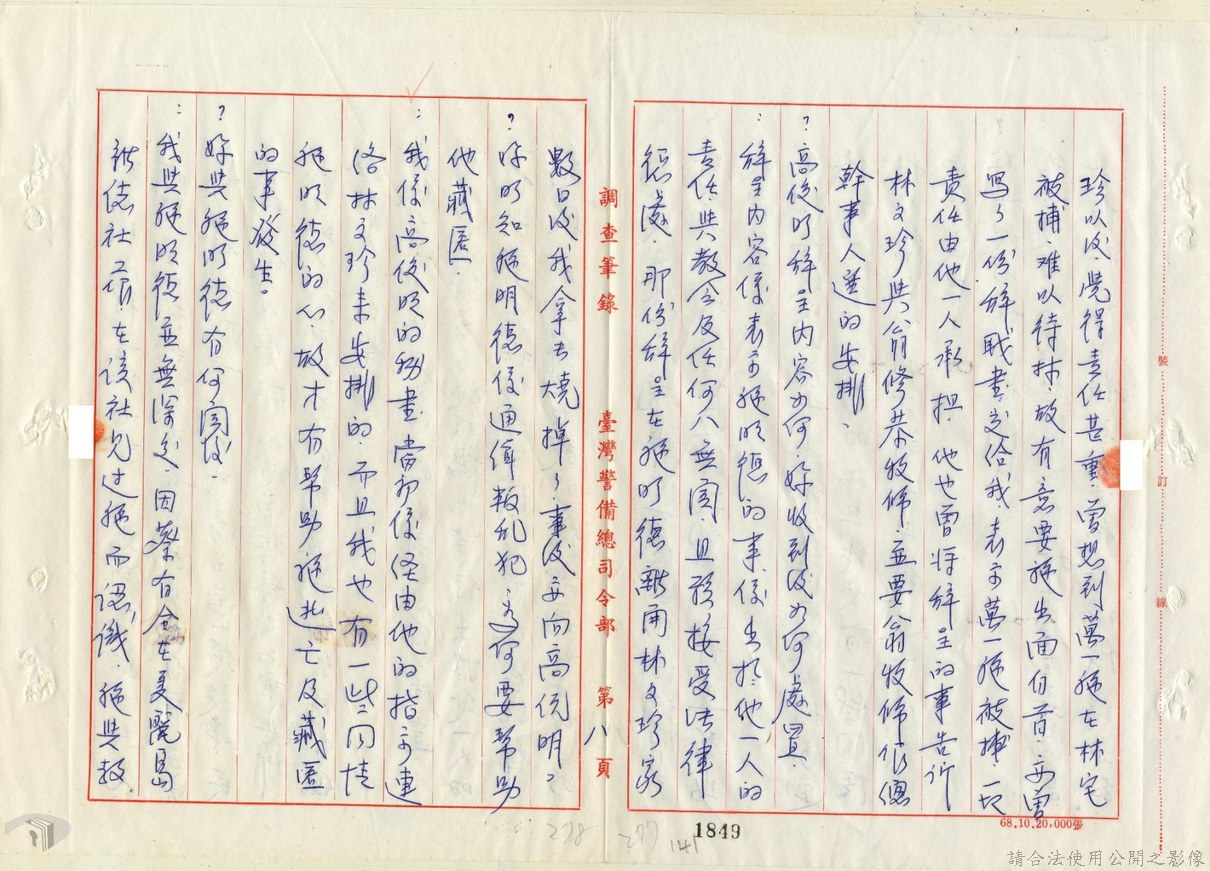 珍以後、覺得責任甚重、曾想到萬一施在林宅
被捕、難以待林、故有意要施出面自首、並曾
寫了一份辭職書交給我、表示萬一施被捕一切
責任由他一人承担、他也曾將辭呈的事告訴
林文珍與翁修恭牧師、並要翁牧師作總
幹事人選的安排、
？高俊明辭呈內容如何、妳收到後如何處置、
：辭呈內容係表示施明德的事係出於他一人的
責任、與教會及任何人無關、且預接受法律
懲處、那份辭呈在施明德離開林文珍家
調查筆錄 臺灣警備總司令部 第八頁
數日後我拿去燒掉了、事後並向高俊明。
？妳明知施明德係通緝叛乱犯、為何要幫助
他藏匿、
：我係高俊明的秘書、當初係經由他的指示連
洛林文珍來安排的、而且我也有一些同情
施明德的心、故才有幫助施逃亡及藏匿
的事發生。
？妳與施明德有何關係、
：我與施明德並無深交、因蔡有全在美麗島
雜誌社工作、在該社見过施而認識、施與教
裝 訂 線
68.10.20,000張
1849
278 277 141
請合法使用公開之影像